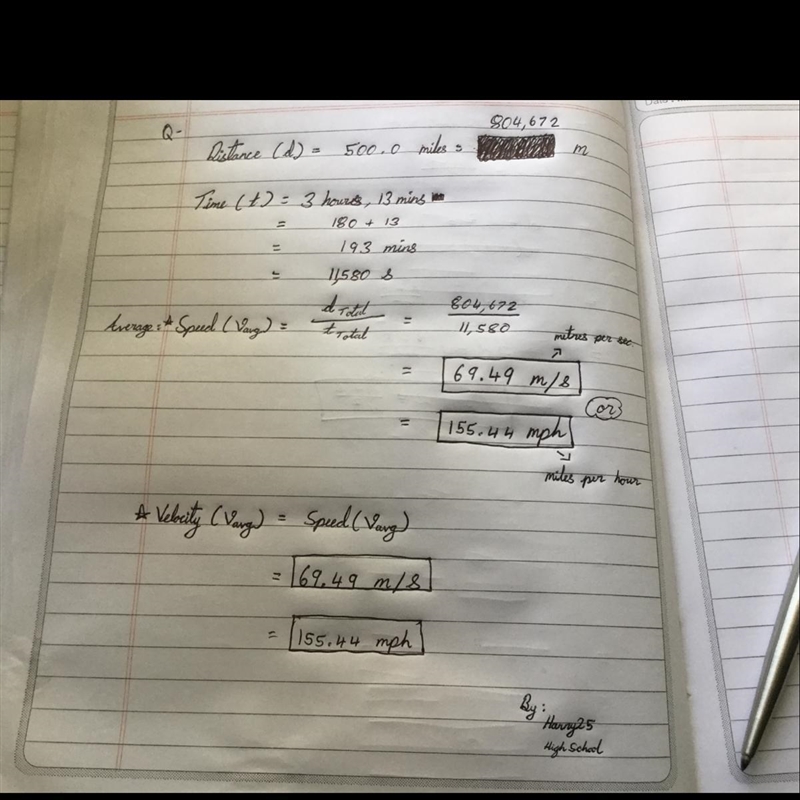 Q-
804,672
Distance (d) = 500.0 miles = m
Time (t) = 3 hours, 13 mins
= 180 + 13
= 193 mins
= 11,580 s
Average :* Speed (Vavg) = d Total / t Total = 804,672 / 11,580
metres per sec.
= 69.49 m/s
or
= 155.44 mph
miles per hour
* Velocity (Vavg) = Speed (Vavg)
= 69.49 m/s
= 155.44 mph
By:
Harry25
High School